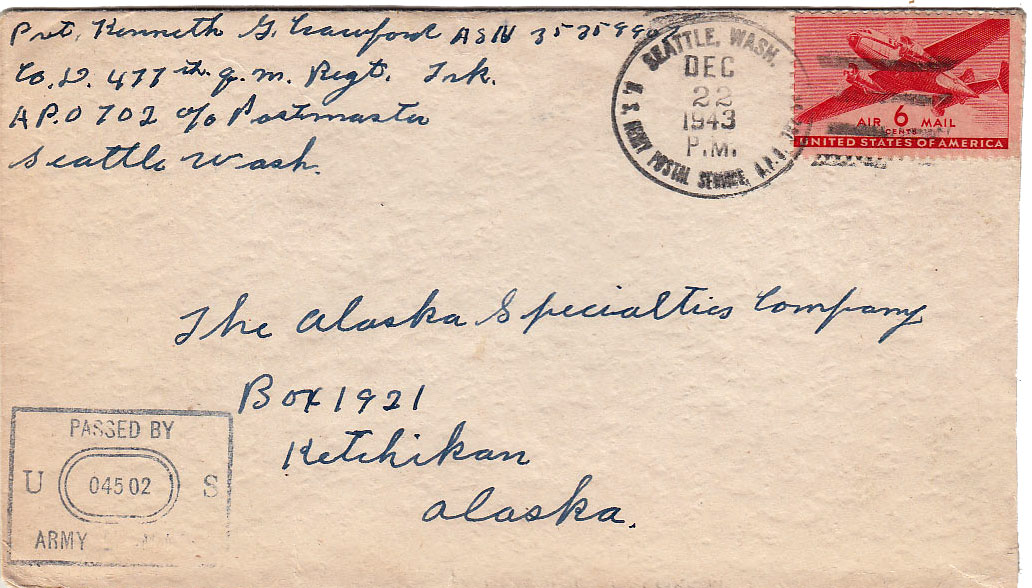 Pvt. Kenneth G. Crawford ASN
Co. D. 477th q.m. Regt. Trk.
A.P.O 702 c/o Postmaster
Seattle Wash.
SEATTLE, WASH.
DEC
22
1943
P.M.
U. S. ARMY POSTAL SERVICE, A.P.O.
AIR 6 MAIL
CENTS
UNITED STATES OF AMERICA
The Alaska Specialties Company
Box 1921
Ketchikan
Alaska.
PASSED BY
U 04502 S
ARMY